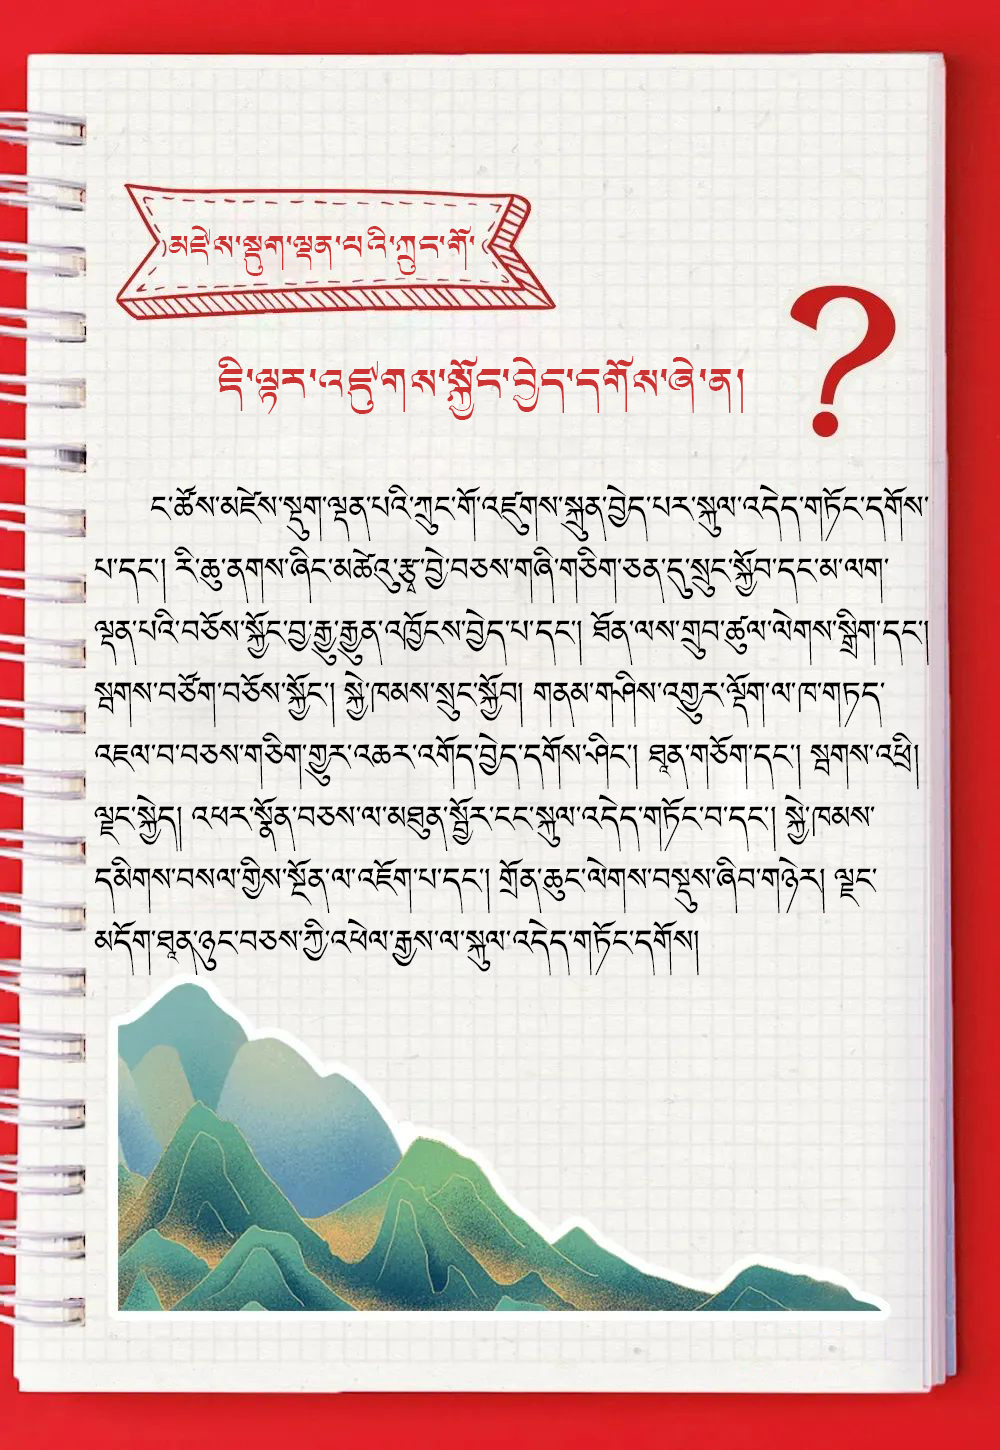 མཛེས་སྡུག་ལྡན་པའི་ཀྲུང་གོ་
ཇི་ལྟར་འཛུགས་སྐྱོང་བྱེད་དགོས་ཞེ་ན།
?
ང་ཚོས་མཛེས་སྡུག་ལྡན་པའི་ཀྲུང་གོ་འཛུགས་སྐྲུན་བྱེད་པར་སྐུལ་འདེད་གཏོང་དགོས་
པ་དང་། རི་ཆུ་ནགས་ཞིང་མཚེའུ་རྩྭ་བྱེ་བཅས་གཞི་གཅིག་ཅན་དུ་སྲུང་སྐྱོབ་དང་མ་ལག་
ལྡན་པའི་བཅོས་སྐྱོང་བྱ་རྒྱུ་རྒྱུན་འཁྱོངས་བྱེད་པ་དང་། ཐོན་ལས་གྲུབ་ཚུལ་ལེགས་སྒྲིག་དང་།
སྦགས་བཙོག་བཅོས་སྐྱོང་། སྐྱེ་ཁམས་སྲུང་སྐྱོབ། གནམ་གཤིས་འགྱུར་ལྡོག་ལ་ཁ་གཏད་
འཇལ་བ་བཅས་གཅིག་གྱུར་འཆར་འགོད་བྱེད་དགོས་ཤིང་། ཐན་གཅོག་དང་། སྦགས་འཕྲི།
ལྗང་སྐྱེད། འཕར་སྣོན་བཅས་ལ་མཐུན་སྦྱོར་ངང་སྐུལ་འདེད་གཏོང་བ་དང་། སྐྱེ་ཁམས་
དམིགས་བསལ་གྱིས་སྔོན་ལ་འཇོག་པ་དང་། གྲོན་ཆུང་ལེགས་བསྡུས་ཞིབ་གཉེར། ལྗང་
མདོག་ཐན་ཉུང་བཅས་ཀྱི་འཕེལ་རྒྱས་ལ་སྐུལ་འདེད་གཏོང་དགོས།